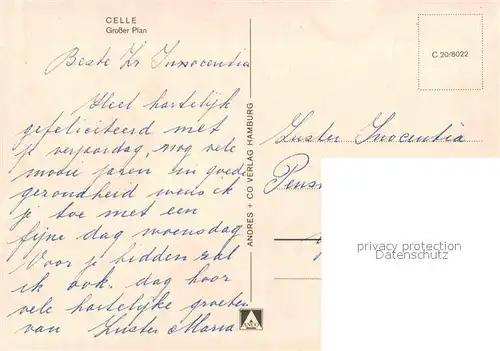 CELLE
Großer Plan
C 20/8022
Beste Zr Innocentia
Heel hartelijk
gefeliciteerd met
je verjaardag, nog vele
mooie jaren in goede
gezondheid wens ik
je toe met een
fijne dag woensdag
Voor je bidden zal
ik ook. dag hoor
vele hartelijke groeten
van Zuster Maria
ANDRES + CO VERLAG HAMBURG
Zuster Inocentia
Pens
privacy protection
Datenschutz